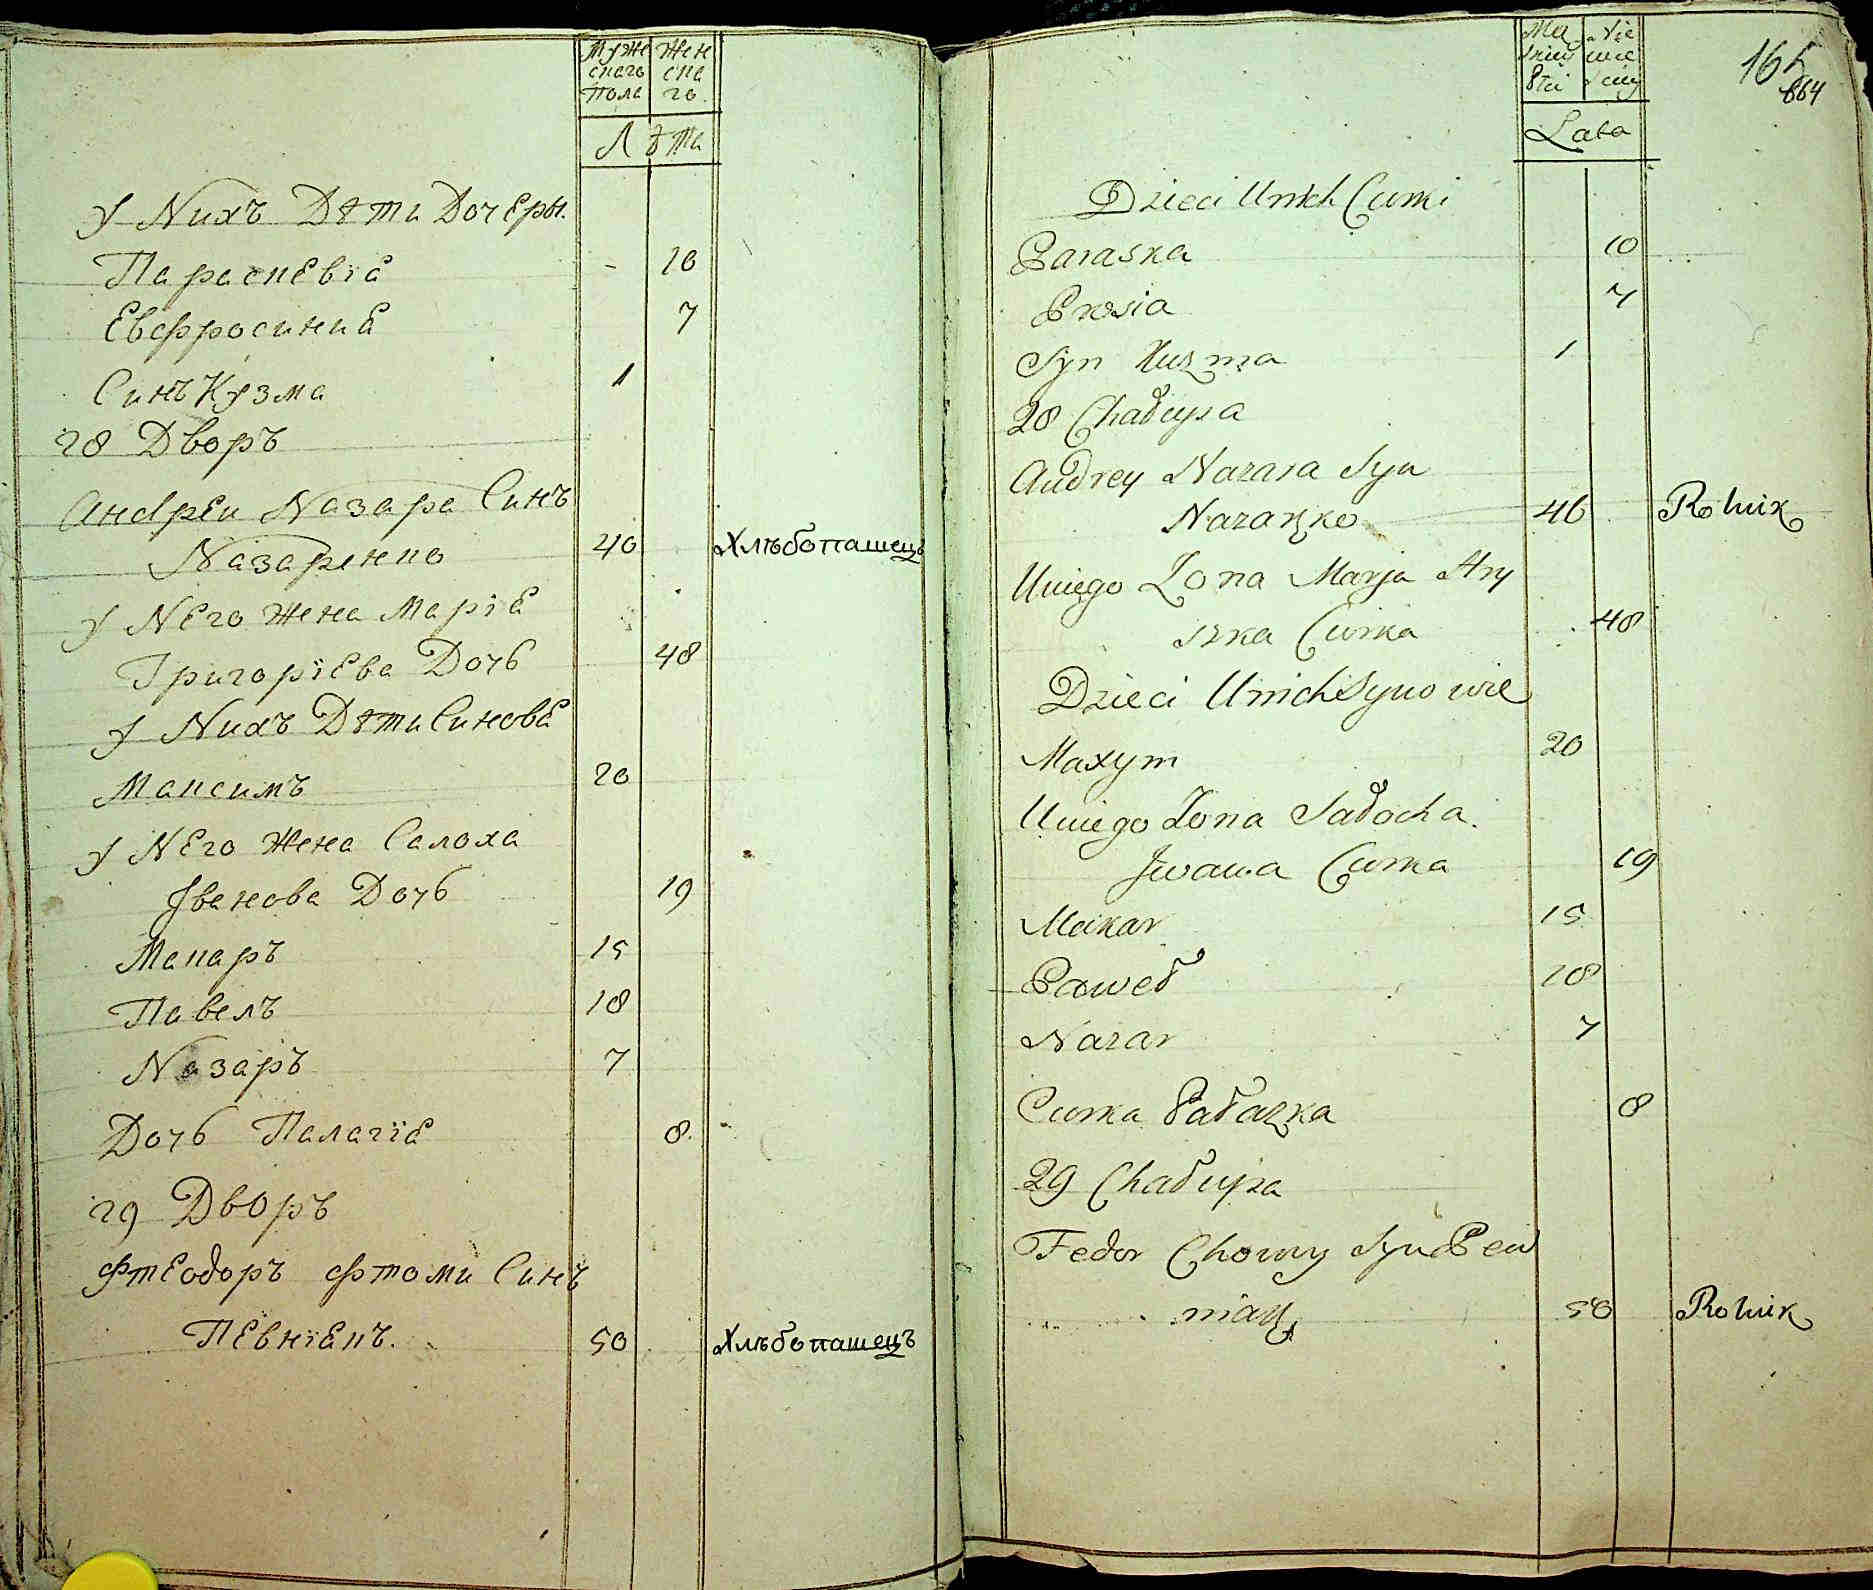 Муже Жен
скаго ска
пола го
Лѣта
У Nихъ Дѣти Дочеры.
Параскевіа 10
Евфросиниа 7
Синъ Кузма 1
28 Дворъ
Андреи Nазара Синъ
Nазаренко 40 Хлѣбопашецъ
У Nего Жена Маріа
Григоріева Дочь 48
У Nихъ Дѣти Синове
Максимъ 20
У Nего Жена Салоха
Іванова Дочь 19
Макаръ 15
Павелъ 18
Nазаръ 7
Дочь Палагіа 8.
29 Дворъ
Фтеодоръ Фтоми Синъ
Певніакъ. 50 Хлѣбопашецъ
864
Lata
Dzieci Unich Curki
Paraska 10
Prosia 7
Syn Kuzma 1
28 Chałupa
Andrey Nazara Syn
Nazarzko 46 Rolnik
Uniego Zona Marja Hry
szka Curka 48
Dzieci Unich Synowie
Maxym 20
Uniego Zona Sałocha.
Jwana Curka 19
Makar 15
Paweł 18
Nazar 7
Curka Pałazka 8
29 Chałupa
Fedor Chomy Syn Pew
niak 50 Rolnik